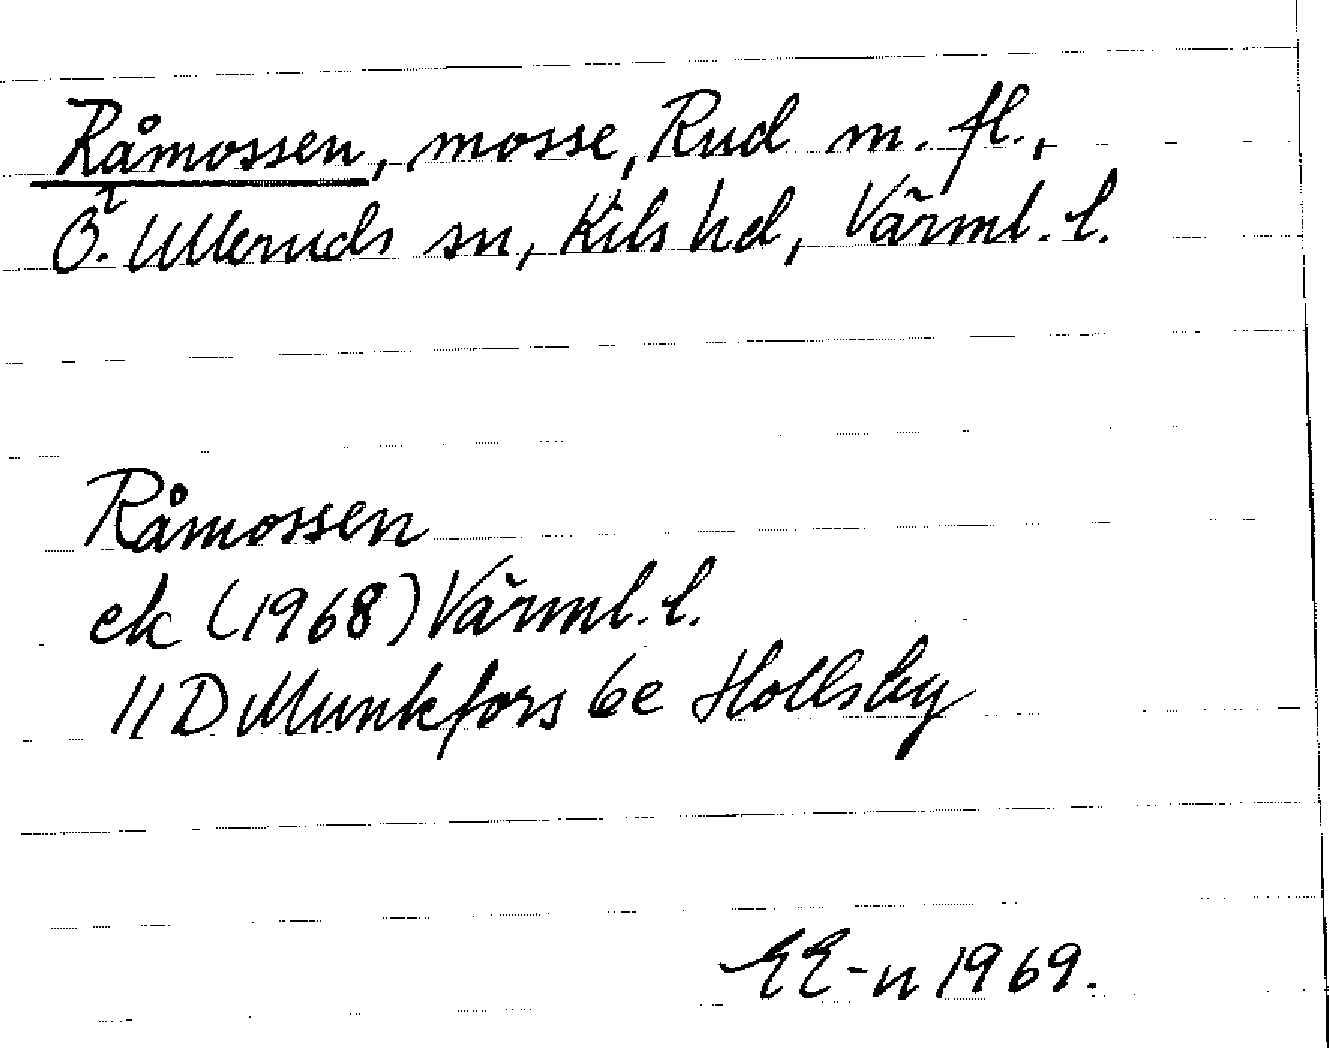 Råmossen, mosse, Rud m. fl.,
Ö. Ulleruds sn, Kils hd, Värml. l.
Råmossen
ek (1968) Värml. l.
11 D Munkfors 6e Hollsby
EE-n 1969.